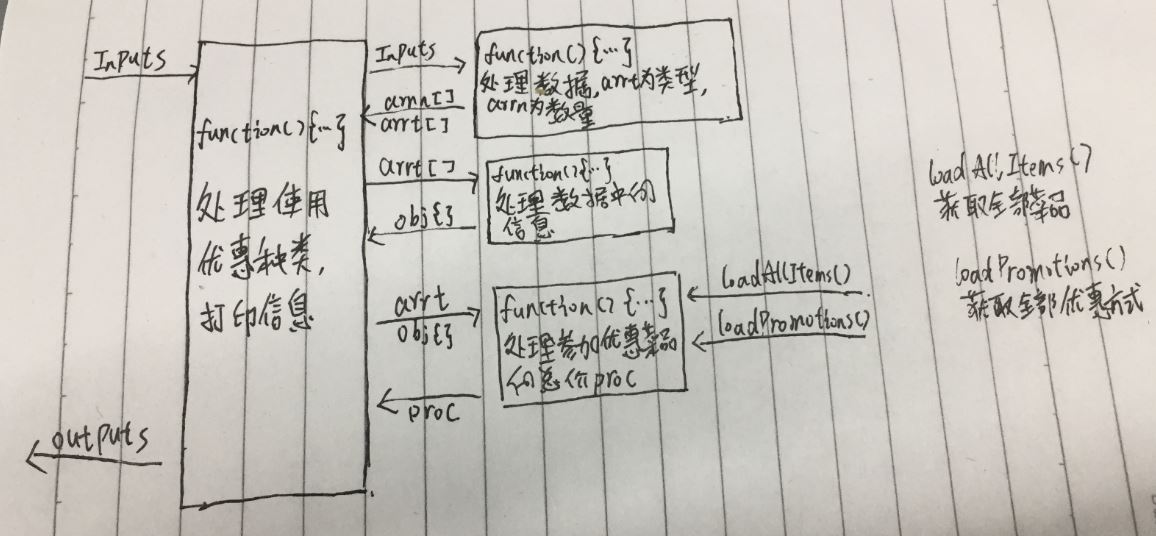 Inputs
function(){…}
处理使用
优惠种类,
打印信息
outputs
Inputs
arrn[]
arrt[]
function(){…}
处理数据,arrt为类型,
arrn为数量
arrt[]
obj{}
function(){…}
处理数据中的
信息
arrt
obj{}
proc
function(){…}
处理参加优惠菜品
的总价proc
loadAllItems()
loadPromotions()
loadAllItems()
获取全部菜品
loadPromotions()
获取全部优惠方式